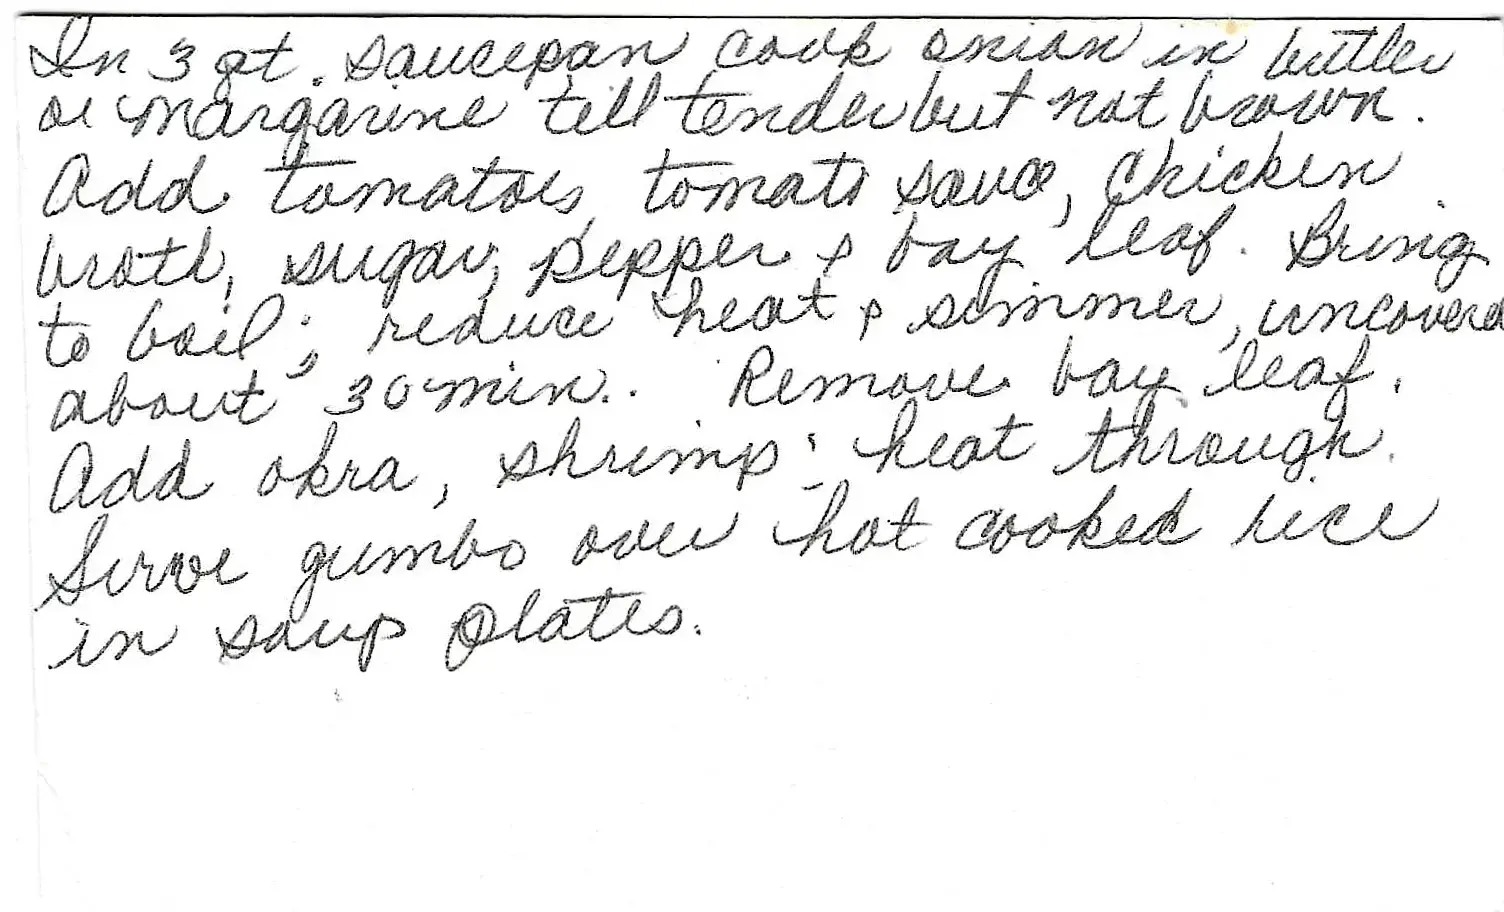 In 3 qt. saucepan cook onion in butter
or margarine till tender but not brown.
Add tomatoes, tomato sauce, chicken
broth, sugar, pepper & bay leaf. Bring
to boil; reduce heat & simmer, uncovered
about 30 min.. Remove bay leaf.
Add okra, shrimp; heat through.
Serve gumbo over hot cooked rice
in soup plates.